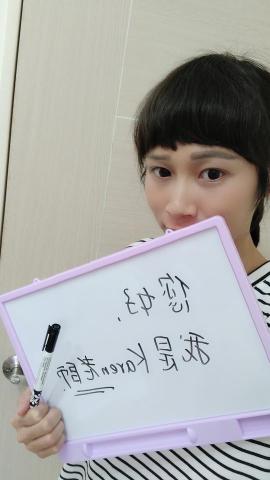 您好,
我是Karen老師